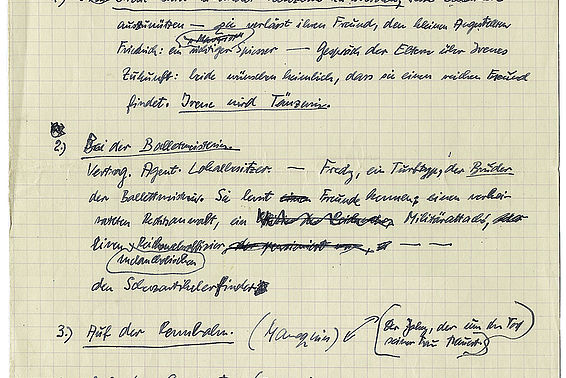 auszunützen — sie verlässt ihren Freund, den kleinen Angestellten
Friedrich: ein richtiger Spiesser — Gespräch der Eltern über Irenes
Zukunft: beide wünschen heimlich, dass sie einen reichen Freund
findet. Irene wird Tänzerin.
2.) Bei der Ballettmeisterin.
Vertrag. Agent. Lokalbesitzer. — Fredy, ein Turftyp, der Bruder
der Ballettmeisterin. Sie lernt Freunde kennen, einen verhei-
rateten Rechtsanwalt, ein Militärattaché,
einen
melancholischen
den Scherzartikelerfinder
3.) Auf der Rennbahn. (Manequins)
der um den Tod
seiner Frau trauert